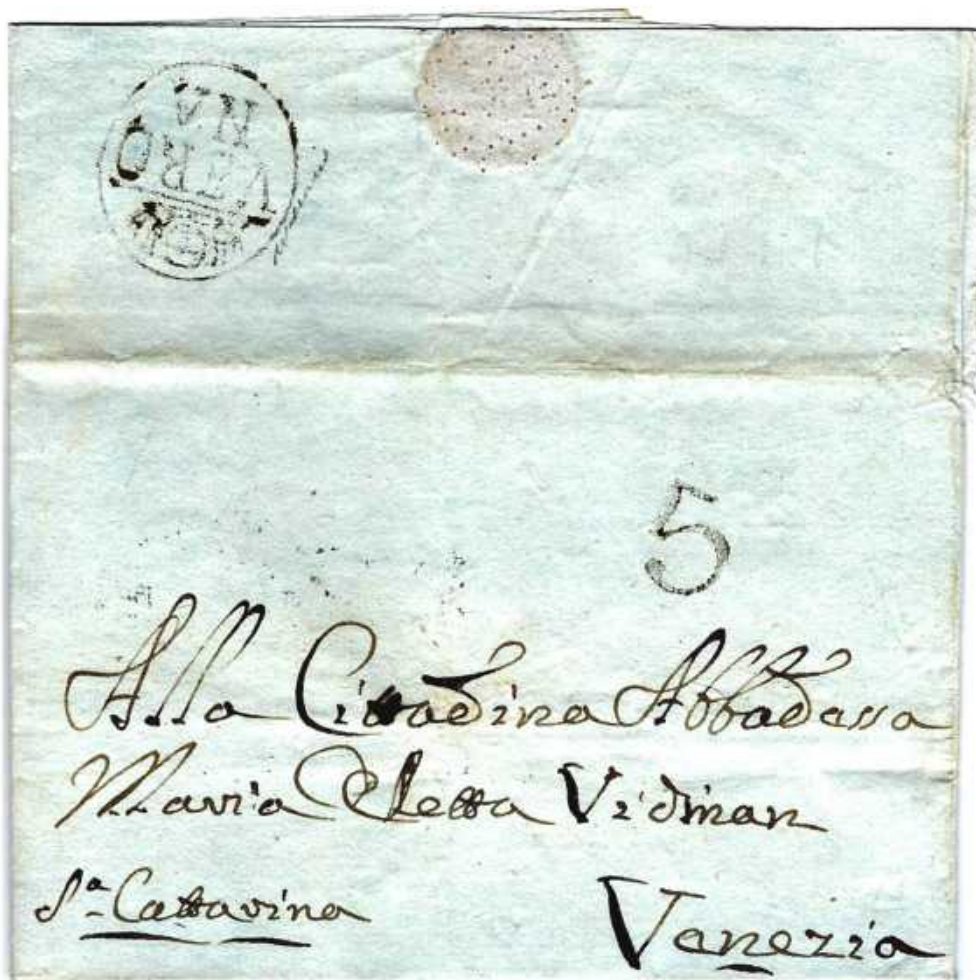 VERO
NA
5
Alla Cittadina Abbadessa
Maria Eletta Vidman
S.ª Cattarina
Venezia